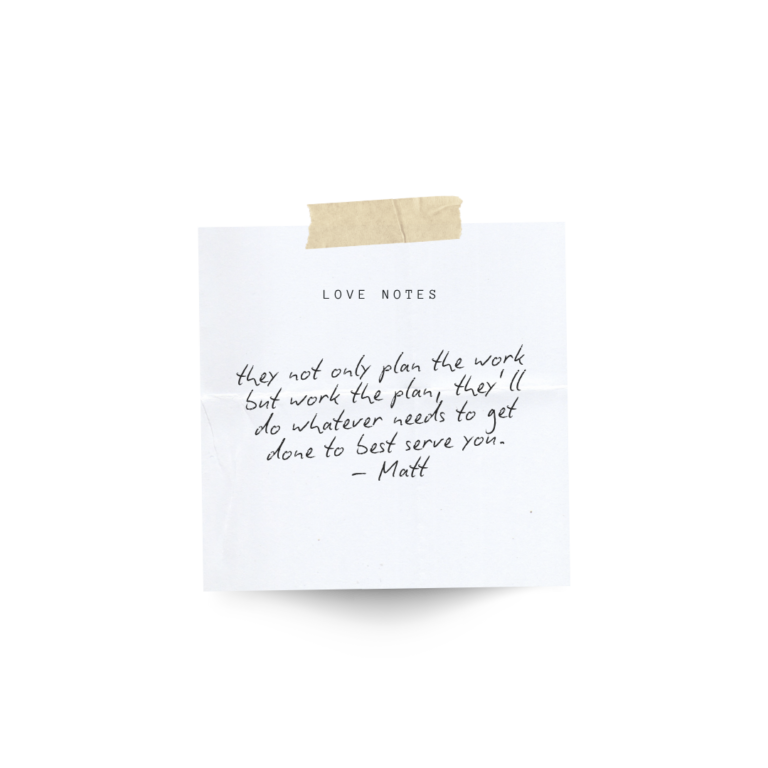 LOVE NOTES
they not only plan the work
but work the plan, they'll
do whatever needs to get
done to best serve you.
– Matt